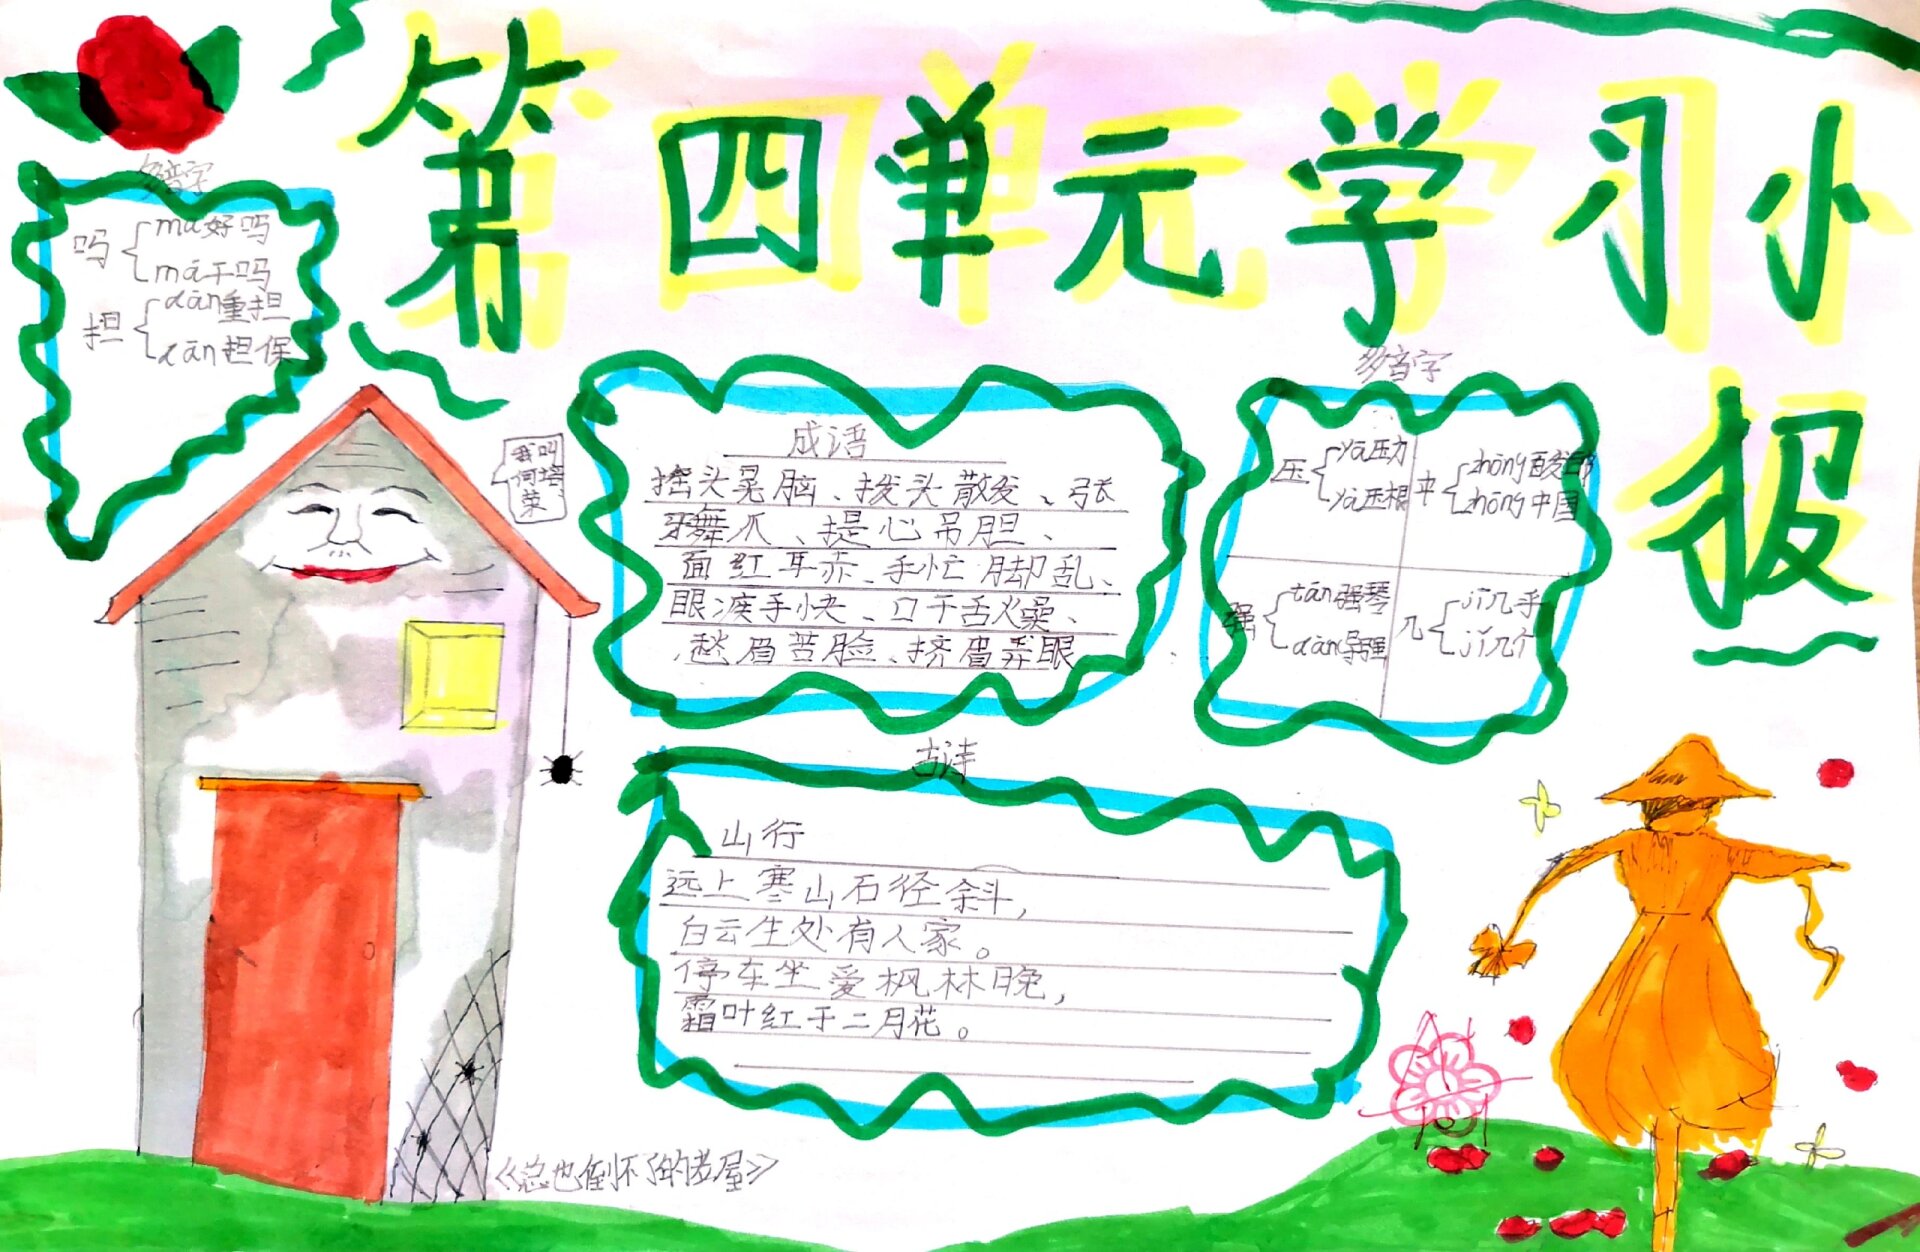 第四单元学习小
报
多音字
吗 ma好吗
má干吗
担 dàn重担
dān担保
我叫
何培
成语
摇头晃脑、披头散发、张
牙舞爪、提心吊胆、
面红耳赤、手忙脚乱、
眼疾手快、口干舌燥、
愁眉苦脸、挤眉弄眼
多音字
压 yā压力
yà压根
中 zhōng
zhōng中国
tán
dàn
几 jī几乎
jǐ几个
古诗
山行
远上寒山石径斜，
白云生处有人家。
停车坐爱枫林晚，
霜叶红于二月花。
《总也倒怀了的老屋》